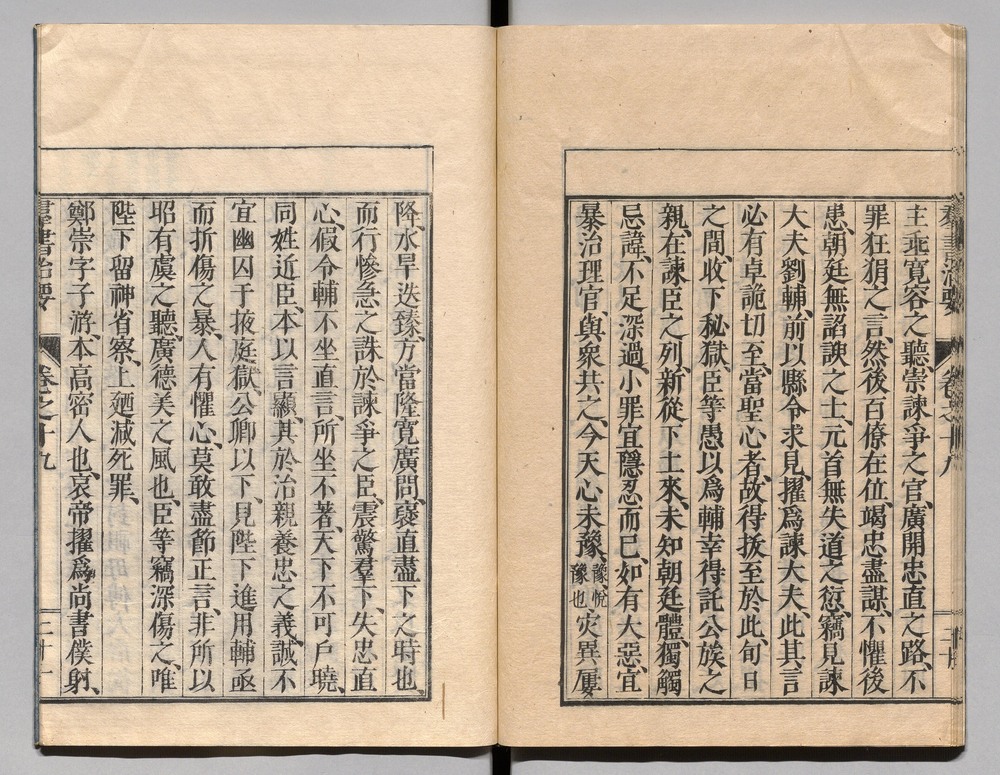 主乖寬容之聽、崇諫爭之官、廣開忠直之路、不
罪狂狷之言、然後百僚在位、竭忠盡謀、不懼後
患、朝廷無諂諛之士、元首無失道之愆、竊見諫
大夫劉輔、前以縣令求見、擢爲諫大夫、此其言
必有卓詭切至、當聖心者、故得拔至於此、旬日
之間、收下秘獄、臣等愚以爲輔幸得託公族之
親、在諫臣之列、新從下土來、未知朝廷體、獨觸
忌諱、不足深過、小罪宜隱忍而已、如有大惡、宜
暴治理官、與衆共之、今天心未豫、豫、悅豫也、灾異屢
降、水旱迭臻、方當隆寬廣問、襃直盡下之時也、
而行慘急之誅於諫爭之臣、震驚羣下、失忠直
心、假令輔不坐直言、所坐不著、天下不可戶曉、
同姓近臣、本以言顯、其於治親養忠之義、誠不
宜幽囚于掖庭獄、公卿以下、見陛下進用輔亟
而折傷之暴、人有懼心、莫敢盡節正言、非所以
昭有虞之聽、廣德美之風也、臣等竊深傷之、唯
陛下留神省察、上廼減死罪、
鄭崇字子游、本高密人也、哀帝擢爲尚書僕射、
羣書治要
卷之十九
二十一